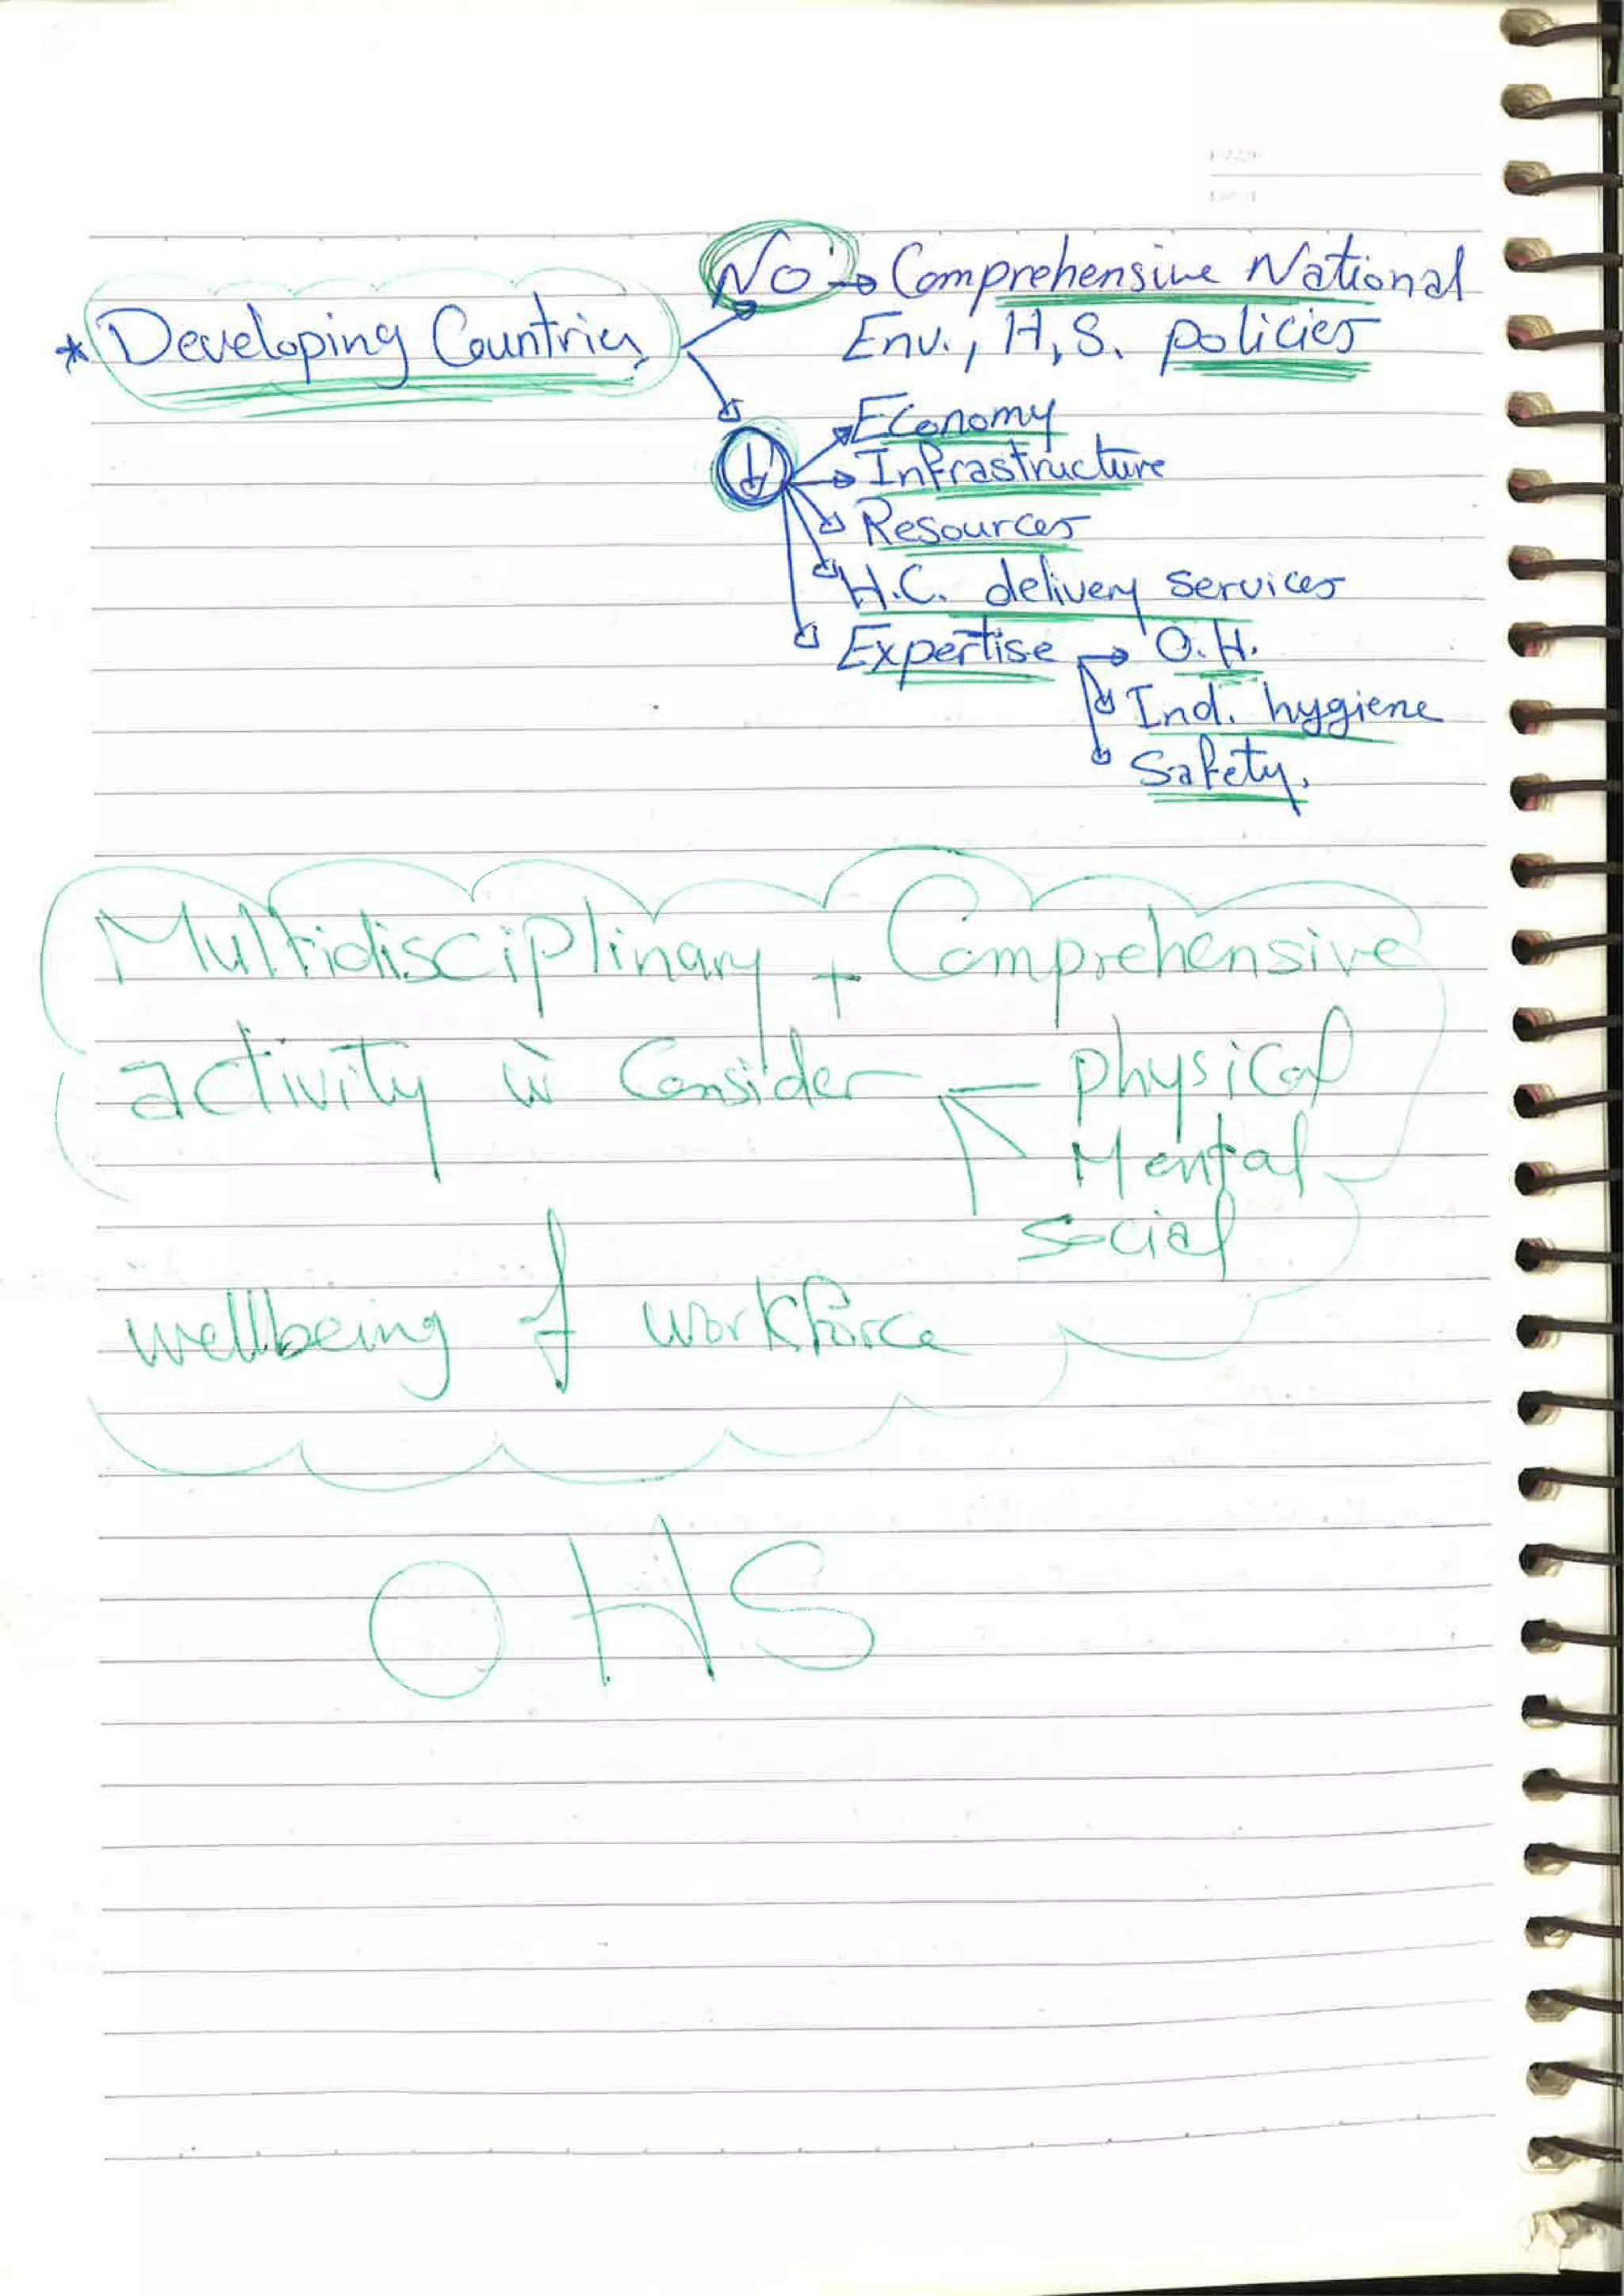 No → Comprehensive National
* Developing Countries
Env., H, S. policies
↓ → Economy
→ Infrastructure
Resources
H.C. delivery services
Expertise → O.H.
Ind. hygiene
Safety.
Multidisciplinary + Comprehensive
activity ẅ Consider — physical
Mental
social
wellbeing of workforce
OHS